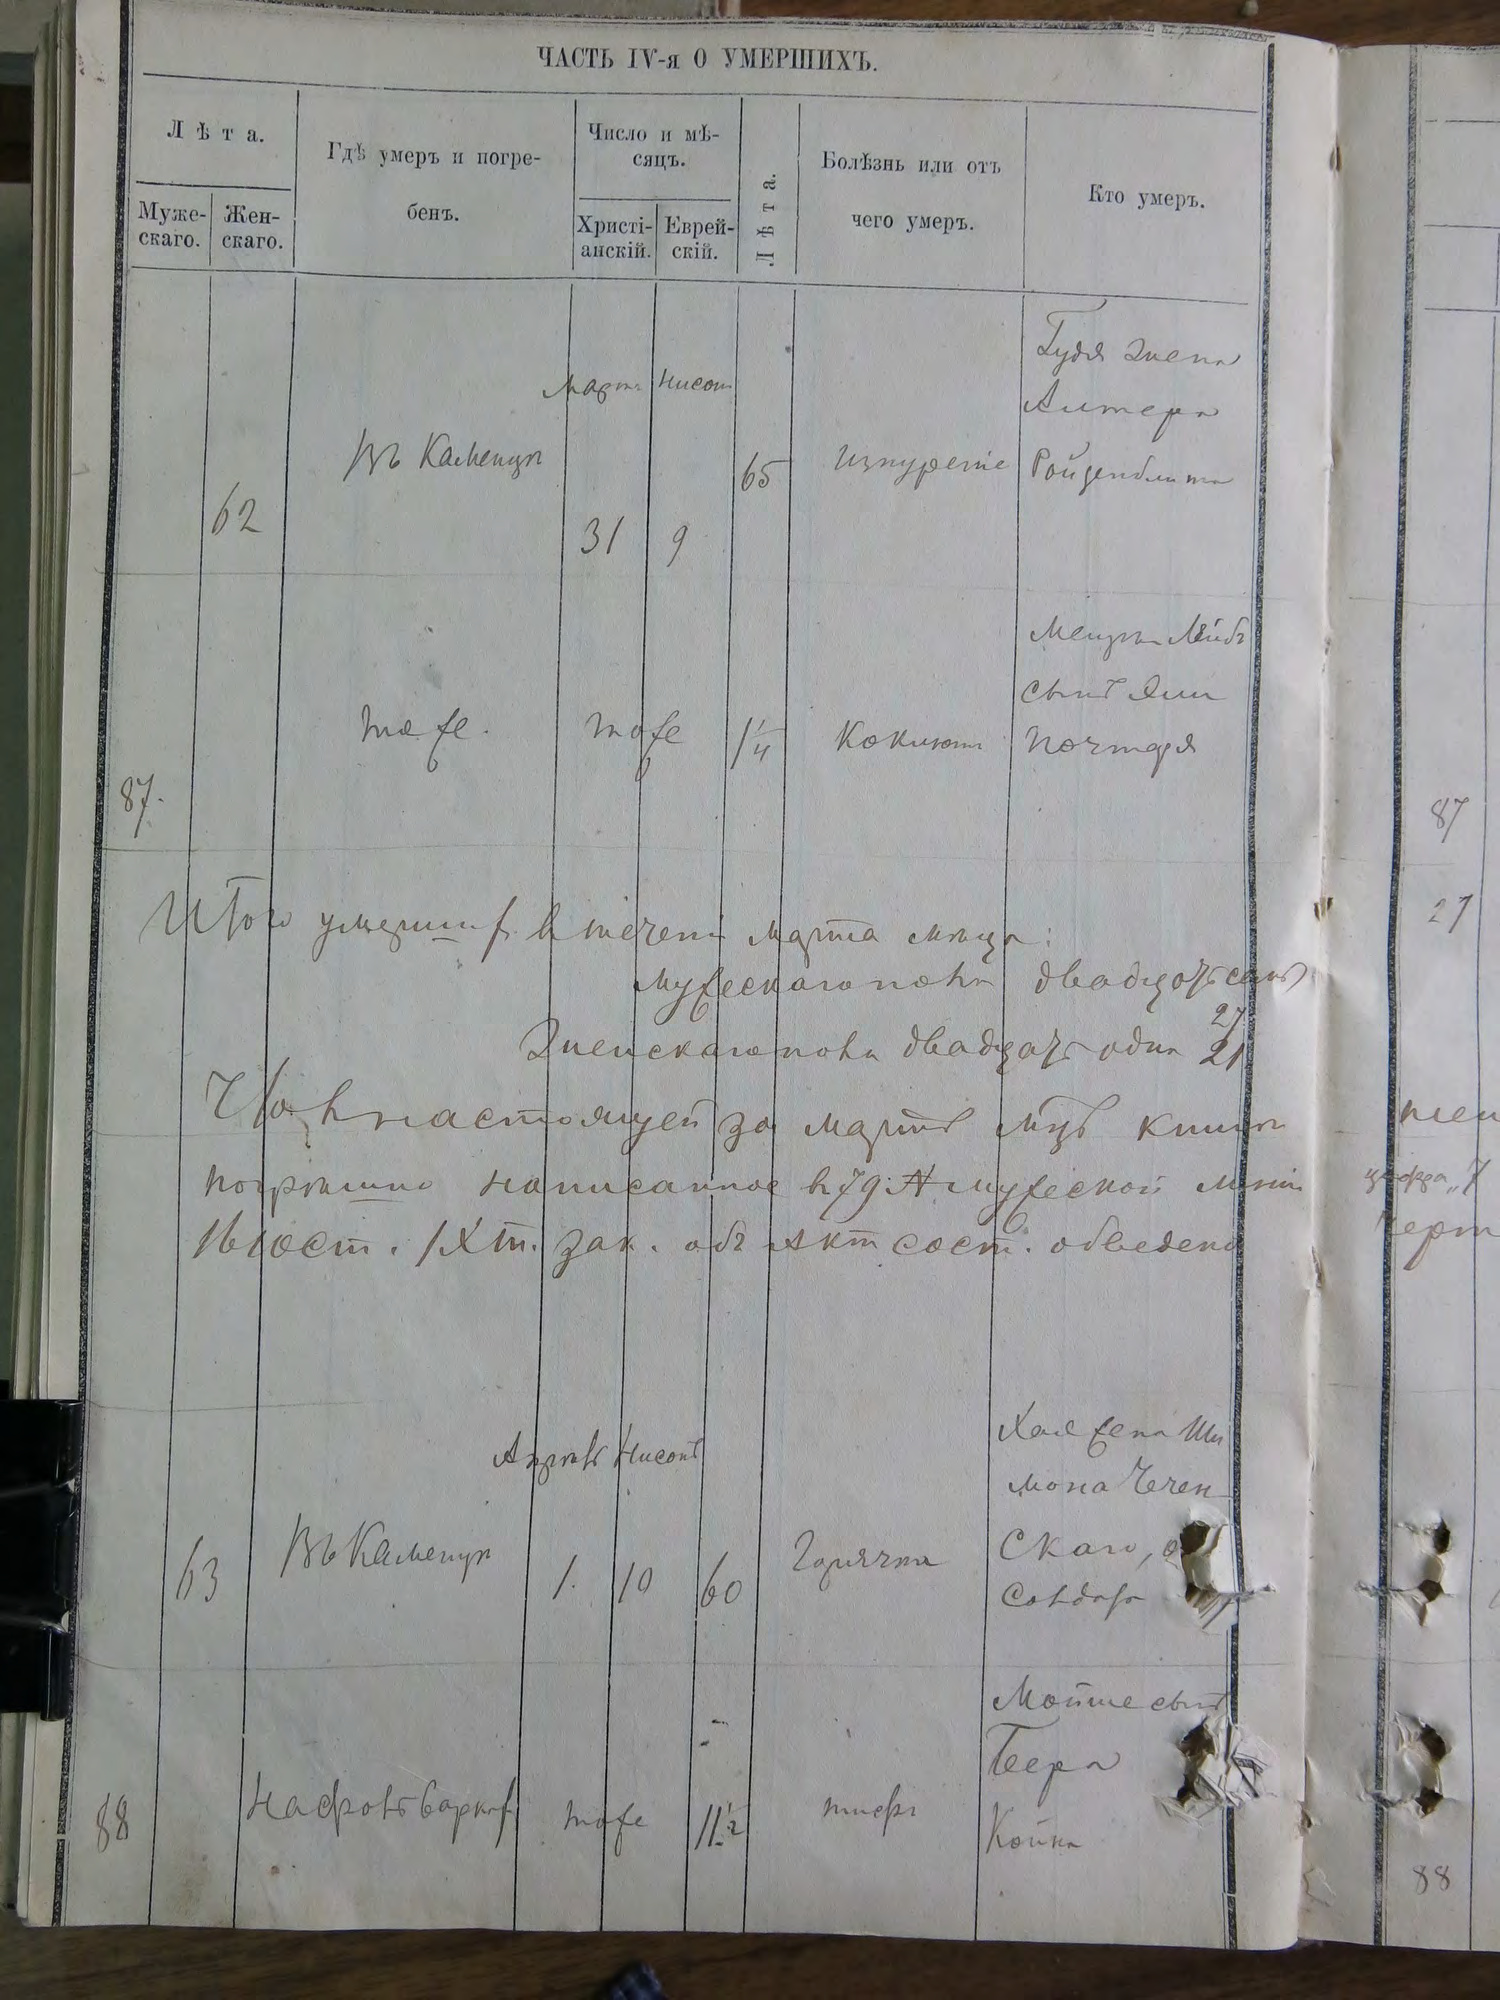 ЧАСТЬ IV-я О УМЕРШИХЪ.
Лѣта.
Муже-
скаго.
Жен-
скаго.
Гдѣ умеръ и погре-
бенъ.
Число и мѣ-
сяцъ.
Христі-
анскій.
Еврей-
скій.
Лѣта.
Болѣзнь или отъ
чего умеръ.
Кто умеръ.
62
Въ Каменцѣ
Марта
31
Нисонъ
9
65
Изнуреніе
Гудя жена
Алтера
Ройзенблита
87.
тоже.
тоже
1 1/4
Коклюшъ
Мещан Лейбъ
сынъ
Почтаря
87
Итого умерших в течени марта мѣсяца:
мужескаго пола двадцать семь
27
Женскаго пола двадцать один 21
27
Что в настоящей за мартъ мцъ книги
написанное в 79 № мужеской
IX т. зак. объ акт сост. обведено
цифра „7
63
Въ Каменцѣ
Апрѣль
1.
Нисонъ
10
60
Горячка
Хая жена Ши
мона Чечен
скаго,
88
тоже
11 1/2
тифъ
Мойше сынъ
Бера
Койна
88